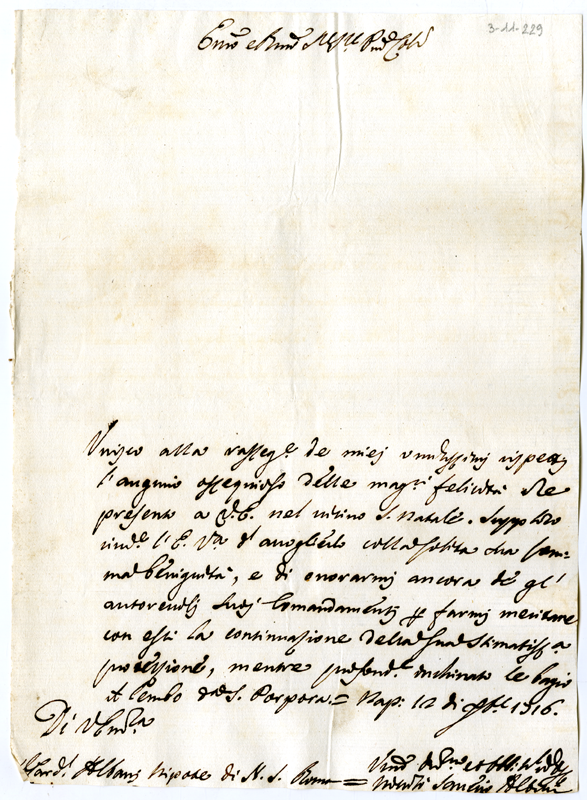 3-11-229
Emo e Rmo Sig.re Pne Col.mo
Unisco alla rasseg.e de miei umilissimi rispetti
l'augurio ossequioso delle mag.ri felicità che
presento a V.E. nel vicino S. Natale. Supplico
l'E. V.ra d'accoglierlo colla solita sua som=
ma benignità, e di onorarmi ancora de gl'
autorevoli suoi Comandamenti p farmi meritare
con essi la continuazione della sua stimatiss.a
protezione, mentre profond.e inchinato le bacio
il lembo della S. Porpora. = Nap: 12 di Xbre 1716.
Di V. Em.a
Card.l Albani Nipote di N. S. Roma =